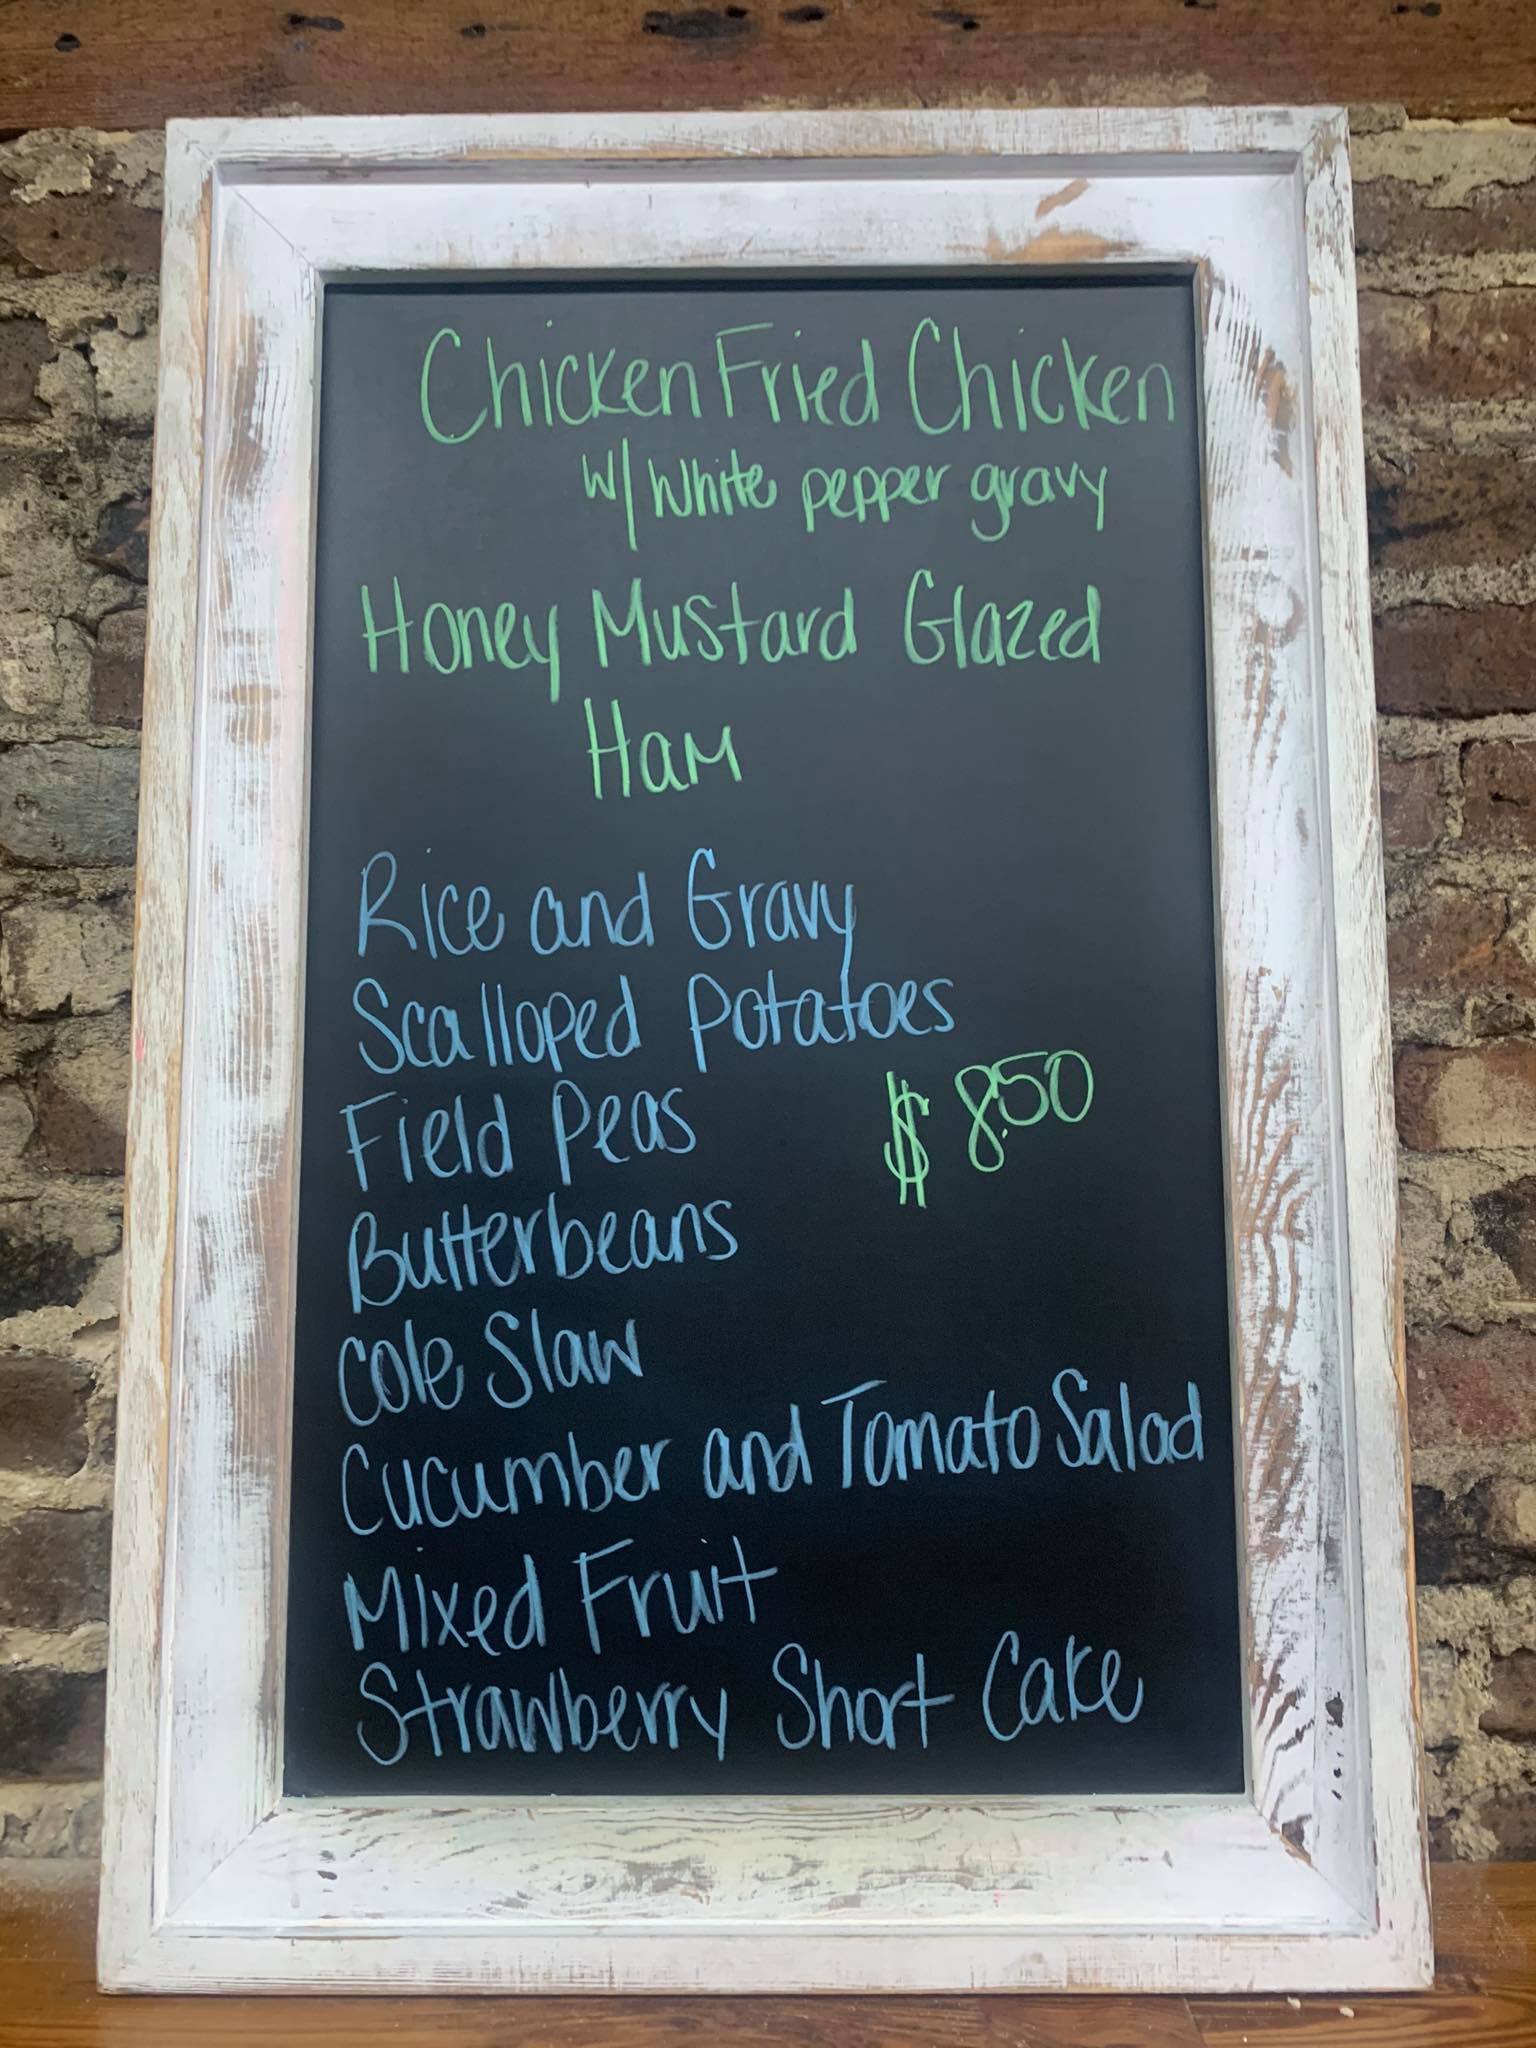 Chicken Fried Chicken
w/ White pepper gravy
Honey Mustard Glazed
Ham
Rice and Gravy
Scalloped Potatoes
Field Peas
$ 8.50
Butterbeans
Cole Slaw
Cucumber and Tomato Salad
Mixed Fruit
Strawberry Short Cake